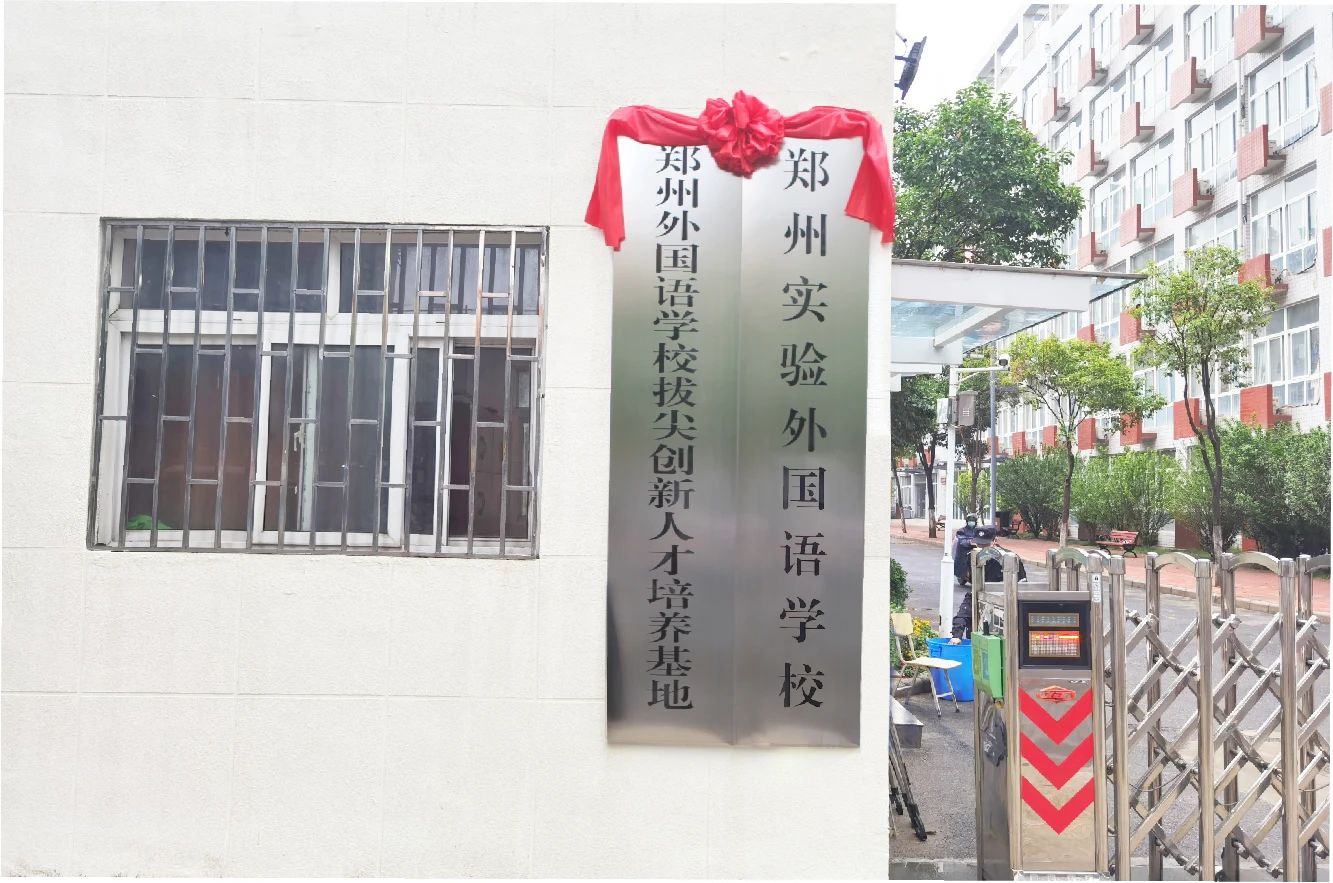 郑州实验外国语学校
郑州外国语学校拔尖创新人才培养基地